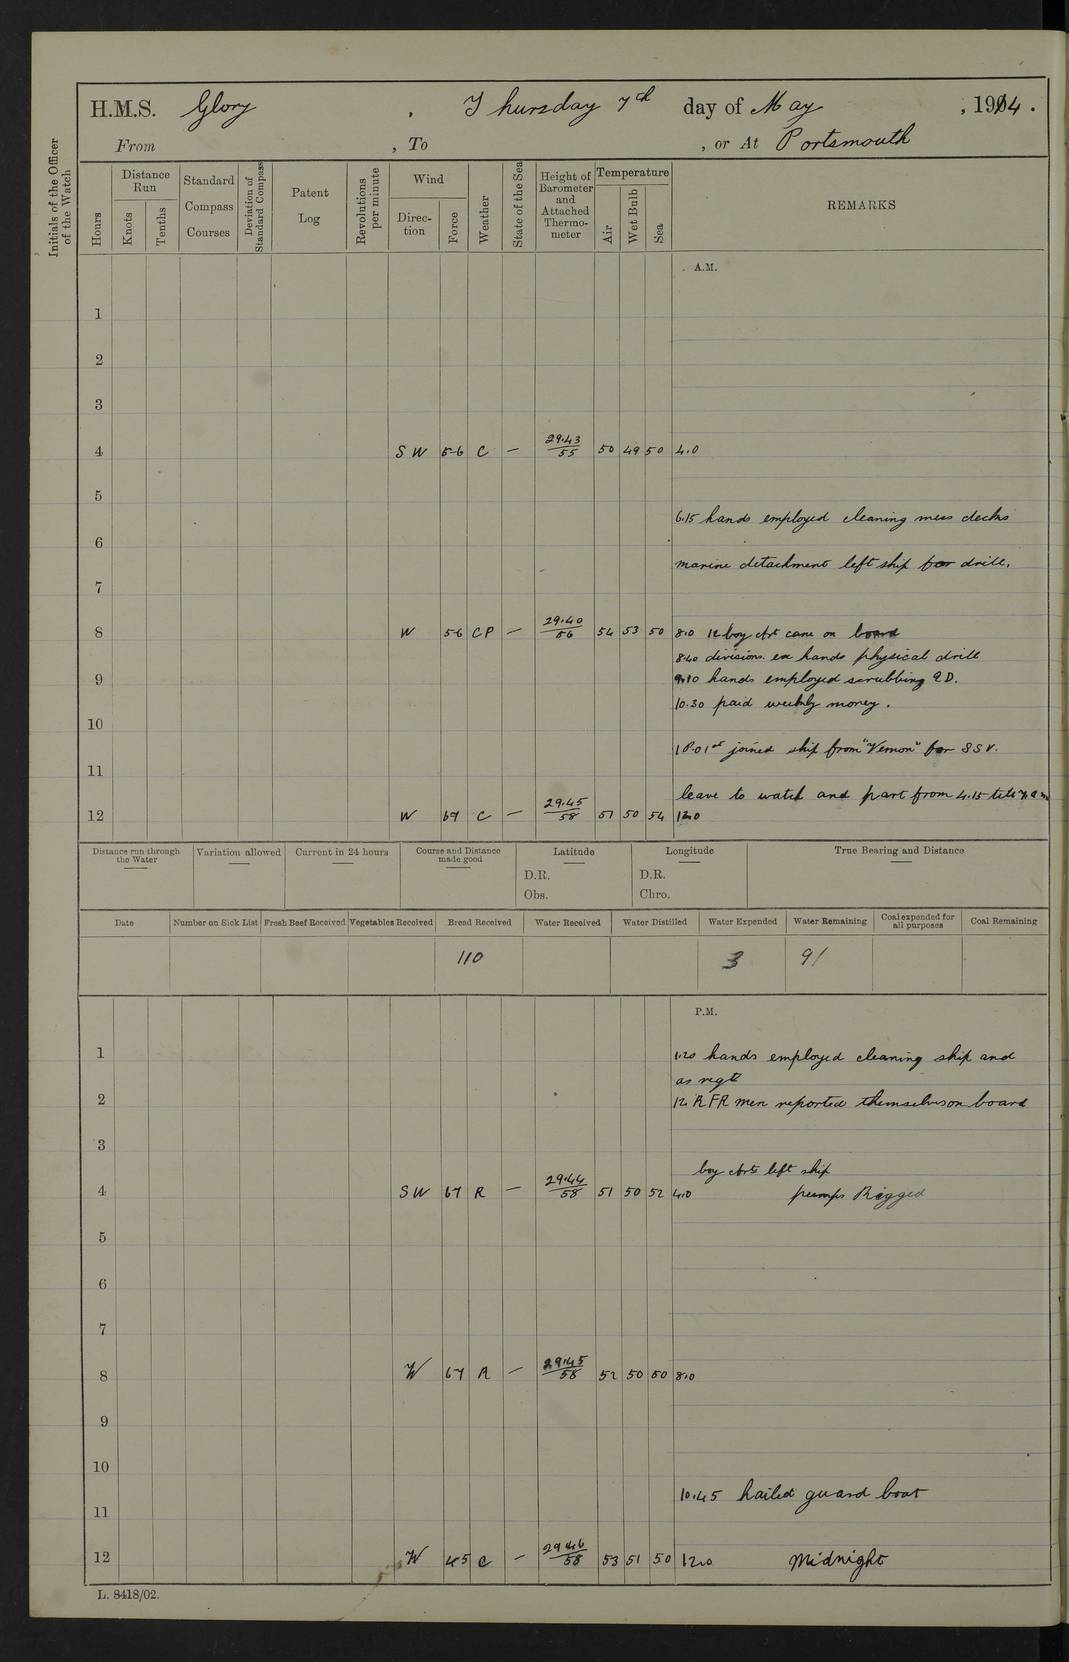 H.M.S. Glory , Thursday 7th day of May , 1914 .
From , To , or At Portsmouth
Initials of the Officer of the Watch
Hours
Distance Run
Knots Tenths
Standard Compass Courses
Deviation of Standard Compass
Patent Log
Revolutions per minute
Wind
Direc-tion Force
Weather
State of the Sea
Height of Barometer and Attached Thermo-meter
Temperature
Air Wet Bulb Sea
REMARKS
A.M.
1
2
3
4 SW 5-6 C — 29.43/55 50 49 50 4.0
5
6.15 hands employed cleaning mess decks
6
marine detachment left ship for drill.
7
8 W 56 CP — 29.40/56 54 53 50 8.0 12 boy art came on board
8.40 divisions. ex hands physical drill
9 9.10 hands employed scrubbing Q D.
10.30 paid weekly money.
10
1 P.O 1st joined ship from "Vernon" for SSV.
11
leave to watch and part from 4.15 till 7 a m
12 W 67 C — 29.45/58 51 50 54 12.0
Distance run through the Water
Variation allowed
Current in 24 hours
Course and Distance made good
Latitude
D.R.
Obs.
Longitude
D.R.
Chro.
True Bearing and Distance
Date Number on Sick List Fresh Beef Received Vegetables Received Bread Received Water Received Water Distilled Water Expended Water Remaining Coal expended for all purposes Coal Remaining
110 3 91
P.M.
1 1.20 hands employed cleaning ship and
as reqte
2 12 RFR men reported themselves on board
3
boy arts left ship
4 SW 67 R — 29.44/58 51 50 52 4.0 pumps Rigged
5
6
7
8 W 67 R — 29.45/58 52 50 50 8.0
9
10
10.45 hailed guard boat
11
12 W 45 C — 29.46/58 53 51 50 12.0 Midnight
L. 8418/02.